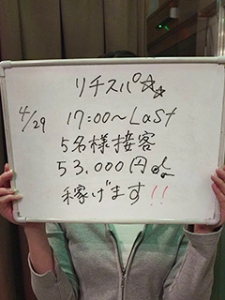 リチスパ☆☆
4/29
17:00〜Last
5名様接客
53,000円♪
稼げます!!